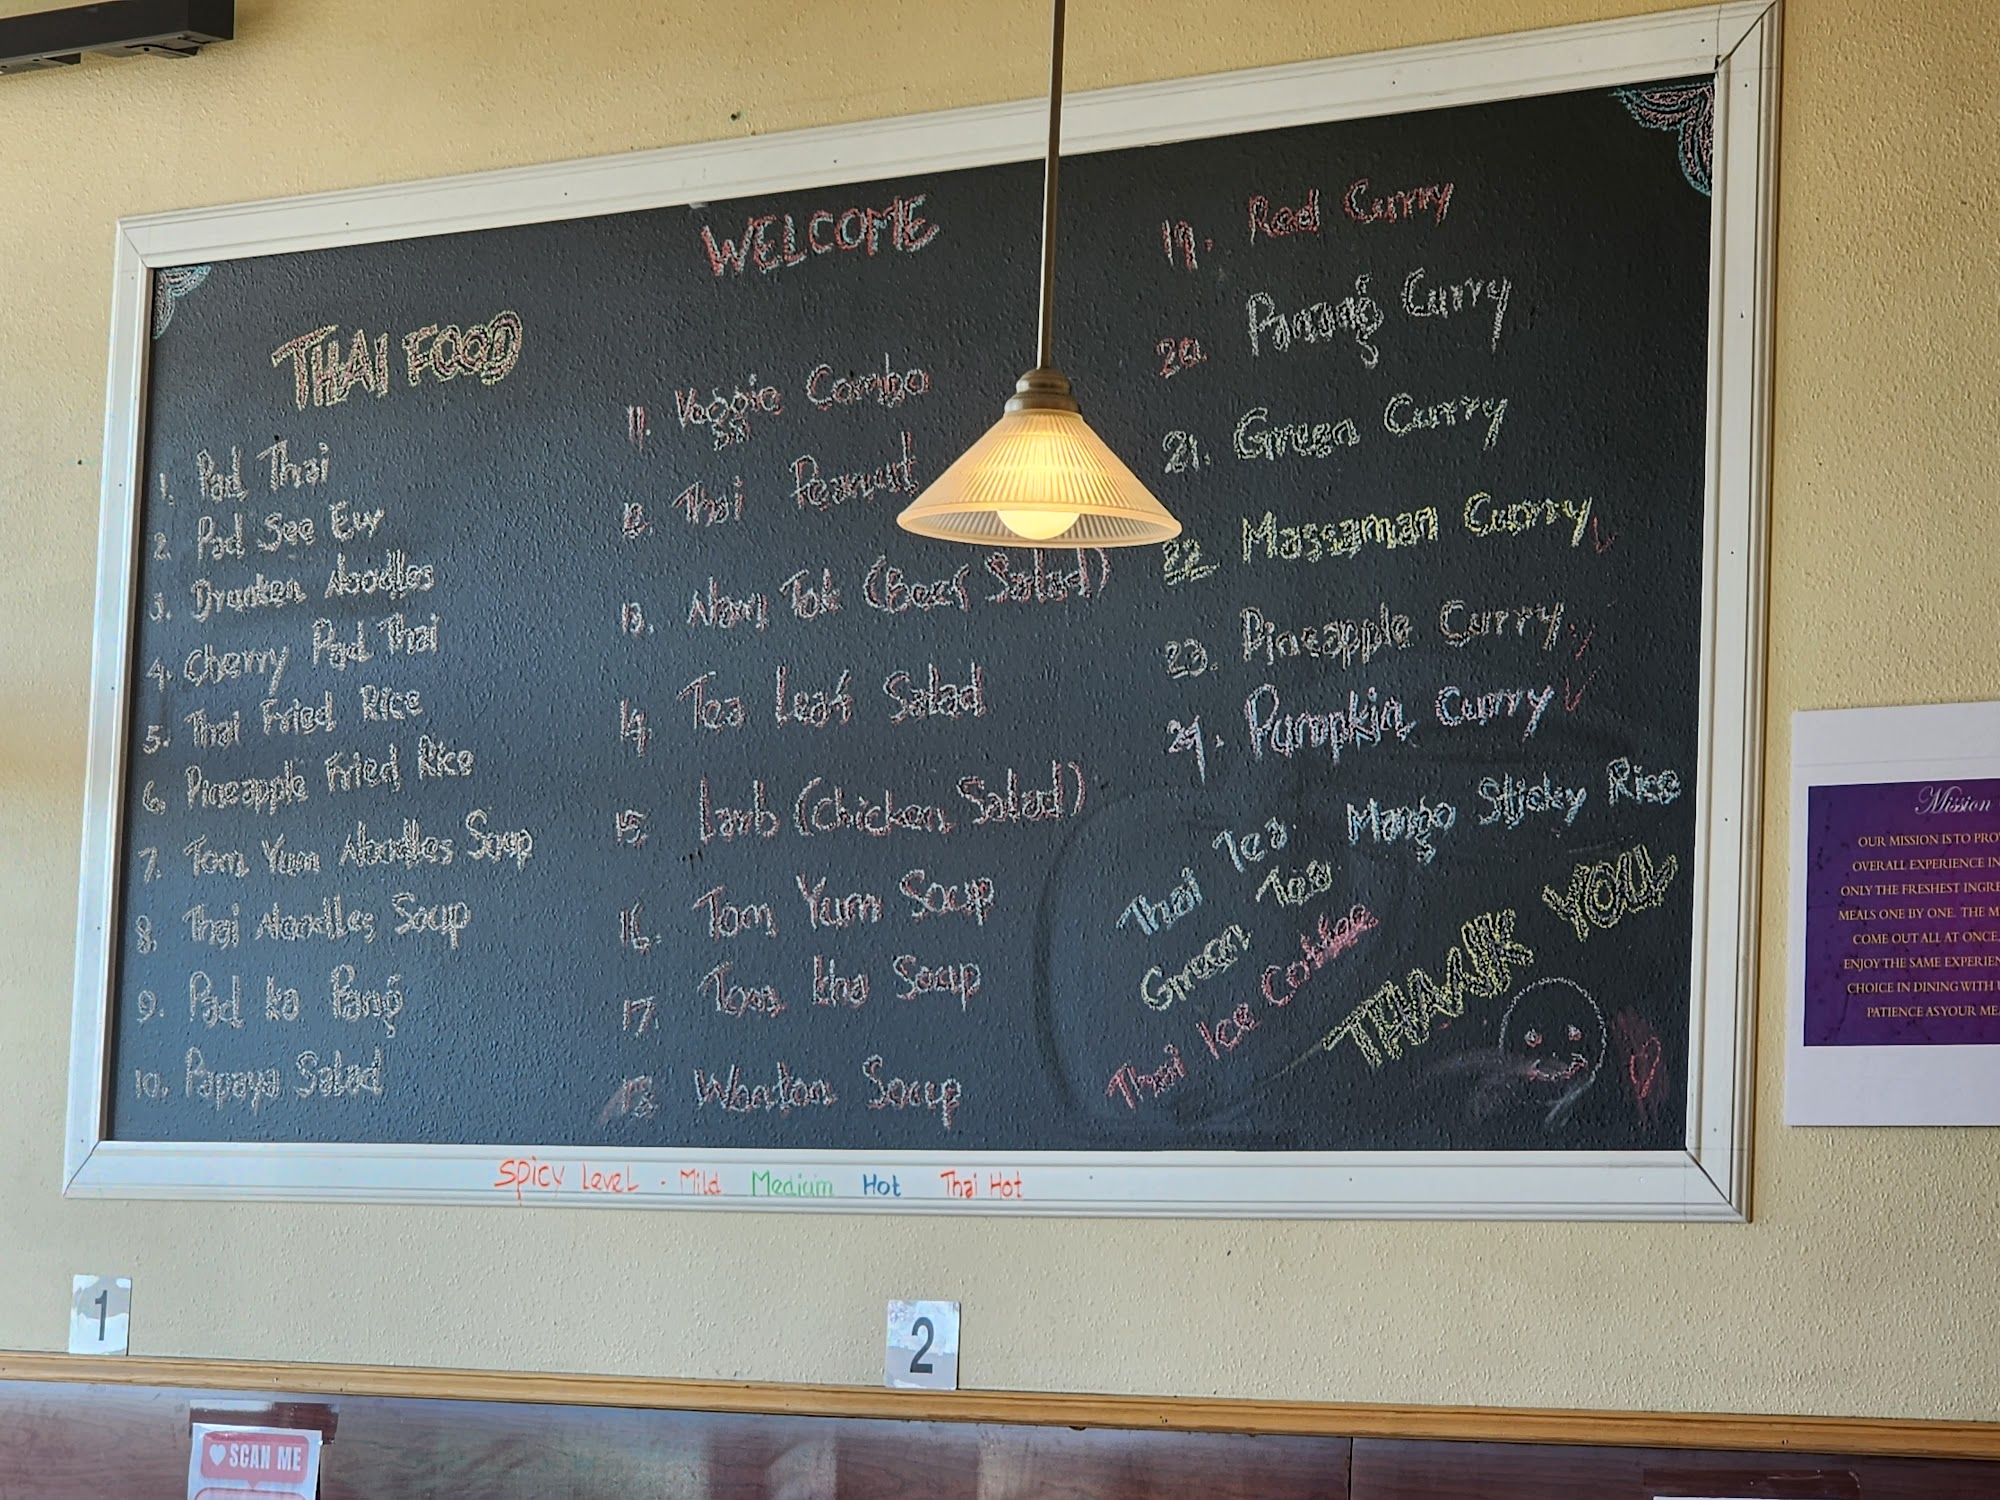 WELCOME
THAI FOOD
1. Pad Thai
2. Pad See Ew
3. Drunken Noodles
4. Cherry Pad Thai
5. Thai Fried Rice
6. Pineapple Fried Rice
7. Tom Yum Noodles Soup
8. Thai Noodles Soup
9. Pad ka Pang
10. Papaya Salad
11. Veggie Combo
12. Thai Peanut
13. Nam Tok (Beef Salad)
14. Tea Leaf Salad
15. Larb (Chicken Salad)
16. Tom Yum Soup
17. Tom kha Soup
18. Wonton Soup
19. Red Curry
20. Panang Curry
21. Green Curry
22. Massaman Curry
23. Pineapple Curry
24. Pumpkin Curry
Thai Tea
Mango Sticky Rice
Green Tea
Thai Ice
THANK YOU
Spicy Level - Mild Medium Hot Thai Hot
1
2
SCAN ME
Mission
OUR MISSION IS TO
OVERALL EXPERIENCE IN
ONLY THE FRESHEST
MEALS ONE BY ONE. THE
COME OUT ALL AT ONCE.
ENJOY THE SAME
CHOICE IN DINING WITH
PATIENCE AS YOUR